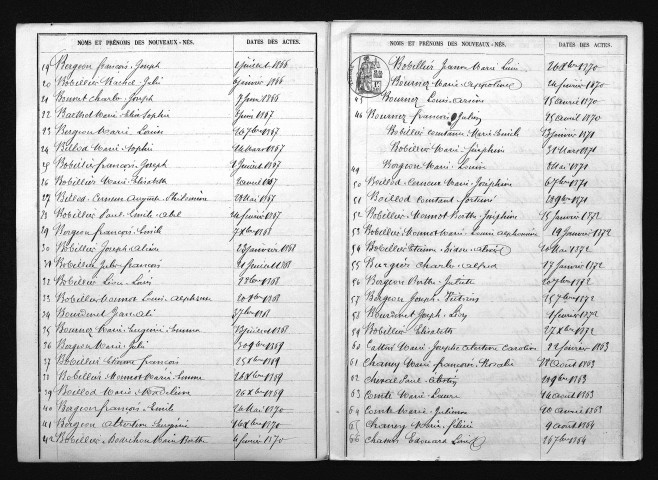 NOMS ET PRÉNOMS DES NOUVEAUX-NÉS. DATES DES ACTES.
19 Bergeon françois Joseph 2 juillet 1866
20 Bobillier Rachel Julie 6 janvier 1866
21 Bonnet Charles Joseph 7 juin 1866
22 Barthod Marie Elia Sophie 1867
23 Bergeon Marie Louise 16 7bre 1867
24 Billod Marie Sophie 14 Mars 1867
25 Bobillier françois Joseph 1 Juillet 1867
26 Bobillier Marie Elisabeth 2 avril 1867
27 Billod Auguste 28 Mai 1867
28 Bobillier Paul Emile Abel 24 février 1867
29 Bergeon françois Emile 7 Xbre 1868
30 Bobillier Joseph 23 janvier 1868
31 Bobillier Jules françois 21 Juillet 1868
32 Bobillier Léon Louis 1868
33 Bobillier Monnot Louis Alphonse 20 9bre 1868
34 Bourdenet Jean 3 7bre 1868
35 Bournez Marie Eugénie Emma 13 juillet 1868
36 Bergeon Marie Julie 30 9bre 1869
37 Bobillier Etienne françois 25 Xbre 1869
38 Bobillier Monnot Marie Emma 24 Xbre 1869
39 Boillod Marie 26 Xbre 1869
40 Bergeon françois Emile 26 Mai 1870
41 Bergeon Eugénie 16 Xbre 1870
42 Bobillier Marie Berthe 4 février 1870
NOMS ET PRÉNOMS DES NOUVEAUX-NÉS. DATES DES ACTES.
Bobillier Jeanne Marie 26 Xbre 1870
Bournez Marie 24 février 1870
45 Bournez Louis 15 avril 1870
46 Bournez françois Julien 25 avril 1870
Bobillier Constance Marie Emile 13 janvier 1871
Bobillier Marie Joséphine 31 Mars 1871
49 Bergeon Marie Louise 2 Mai 1871
50 Boillod Marie Joséphine 6 7bre 1871
51 Boillod Constant fortuné 22 9bre 1871
52 Bobillier Monnot Berthe Joséphine 15 Janvier 1872
53 Bobillier Monnot Marie Louise Alphonsine 19 Janvier 1872
54 Bobillier Etienne 10 Mai 1872
55 Bargier Charles Alfred 17 Janvier 1872
56 Bergeon Berthe 20 7bre 1872
57 Bergeon Joseph 15 7bre 1872
58 Bourdenet Joseph Léon 1 février 1872
59 Bobillier Elisabeth 27 Xbre 1872
60 Cattet Marie Josephe Caroline 22 février 1863
61 Chaney Marie françoise Rosalie 22 août 1863
62 Cheval Paul 21 9bre 1863
63 Comte Marie Laure 14 août 1863
64 Comte Marie Julienne 10 avril 1863
65 Chaney félicie 9 août 1864
66 Edouard Louis 26 7bre 1864